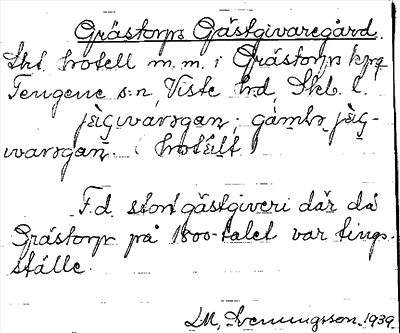 Grästorps Gästgivaregård.
Skt hotell m.m. i Grästorps kpg
Tengene s:n, Viste hd, Skb. l.
jäġivarsgan; gamḷs jäġ-
ivarsgan. ( hotält )
F.d. stort gästgiveri där då
Grästorp på 1800-talet var tings-
ställe.
LM, Svenungsson. 1939.